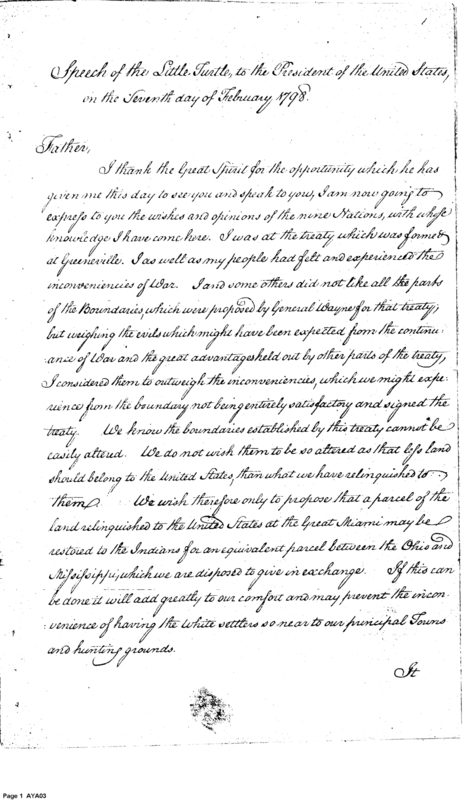 1
Speech of the Little Turtle, to the President of the United States,
on the Seventh day of February, 1798.
Father,
I thank the Great Spirit for the opportunity which he has
given me this day to see you and speak to you, I am now going to
express to you the wishes and opinions of the nine Nations, with whose
knowledge I have come here. I was at the treaty which was formed
at Greeneville. I as well as my people had felt and experienced the
inconveniencies of War. I and some others did not like all the parts
of the Boundaries, which were proposed by General Wayne for that treaty,
but weighing the evils which might have been expected from the continu
ance of War and the great advantages held out by other parts of the treaty,
I considered them to outweigh the inconveniencies, which we might expe
rience from the boundary not being entirely satisfactory and signed the
treaty. We know the boundaries established by this treaty cannot be
easily altered. We do not wish them to be so altered as that less land
should belong to the United States, than what we have relinquished to
them. We wish therefore only to propose that a parcel of the
land relinquished to the United States at the Great Miami may be
restored to the Indians for an equivalent parcel between the Ohio and
Mississippi, which we are disposed to give in exchange. If this can
be done it will add greatly to our comfort and may prevent the incon
venience of having the White settlers so near to our principal Towns
and hunting grounds.
It
Page 1 AYA03